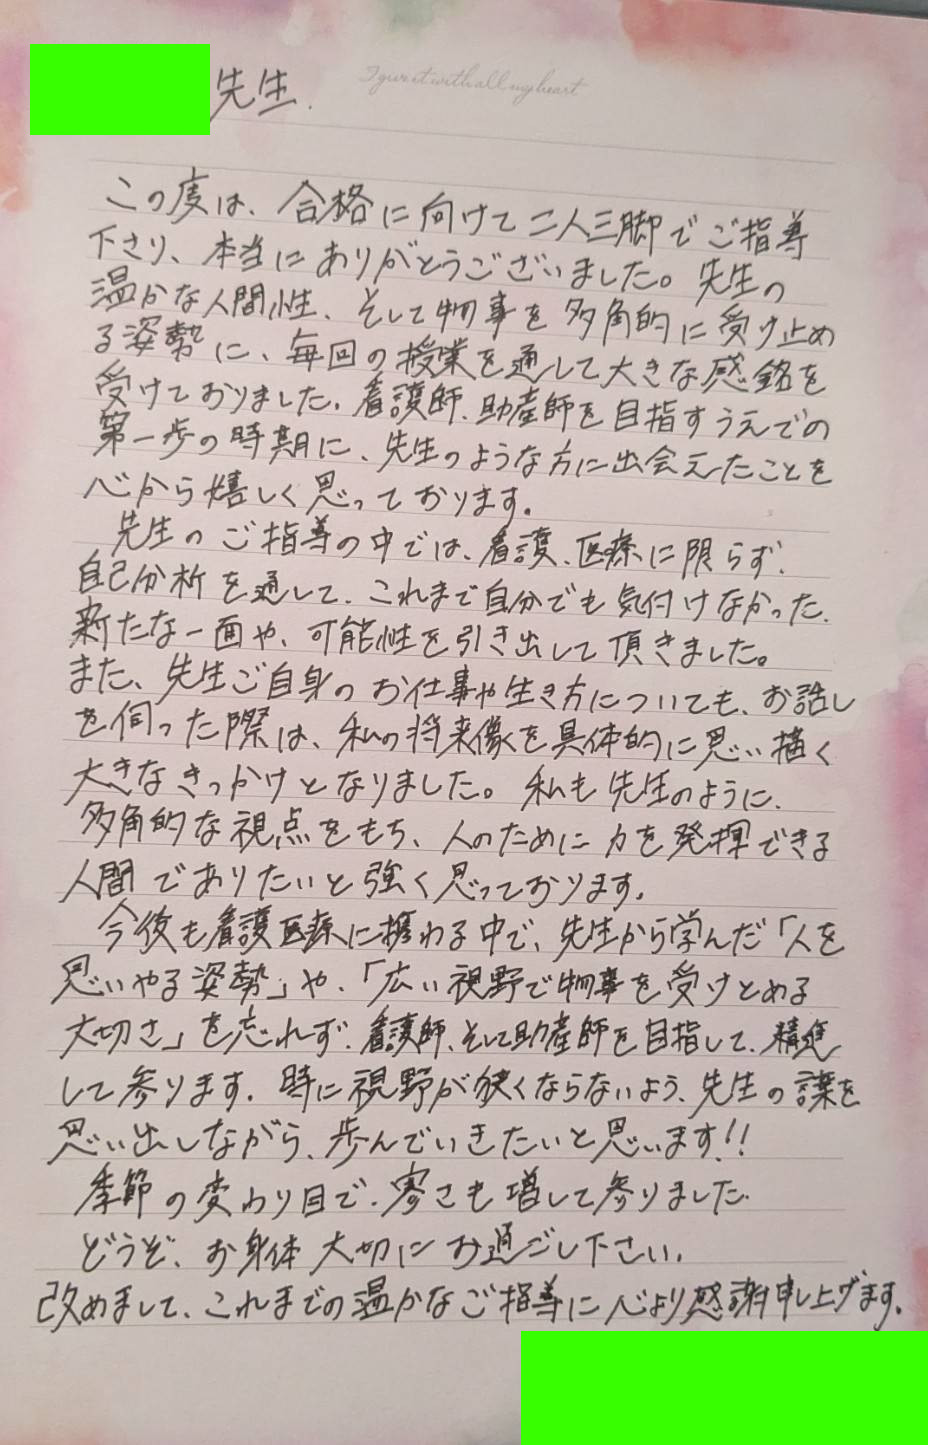 先生.
I give it with all my heart
この度は、合格に向けて二人三脚でご指導
下さり、本当にありがとうございました。先生の
温かな人間性、そして物事を多角的に受け止め
る姿勢に、毎回の授業を通して大きな感銘を
受けておりました。看護師、助産師を目指すうえでの
第一歩の時期に、先生のような方に出会えたことを
心から嬉しく思っております。
先生のご指導の中では、看護、医療に限らず、
自己分析を通して、これまで自分でも気付けなかった、
新たな一面や、可能性を引き出して頂きました。
また、先生ご自身のお仕事や生き方についても、お話し
を伺った際は、私の将来像を具体的に思い描く
大きなきっかけとなりました。私も先生のように、
多角的な視点をもち、人のために力を発揮できる
人間でありたいと強く思っております。
今後も看護医療に携わる中で、先生から学んだ「人を
思いやる姿勢」や、「広い視野で物事を受けとめる
大切さ」を忘れず、看護師、そして助産師を目指して、精進
して参ります。時に視野が狭くならないよう、先生の言葉を
思い出しながら、歩んでいきたいと思います!!
季節の変わり目で、寒さも増して参りました
どうぞ、お身体大切にお過ごし下さい。
改めまして、これまでの温かなご指導に心より感謝申し上げます。